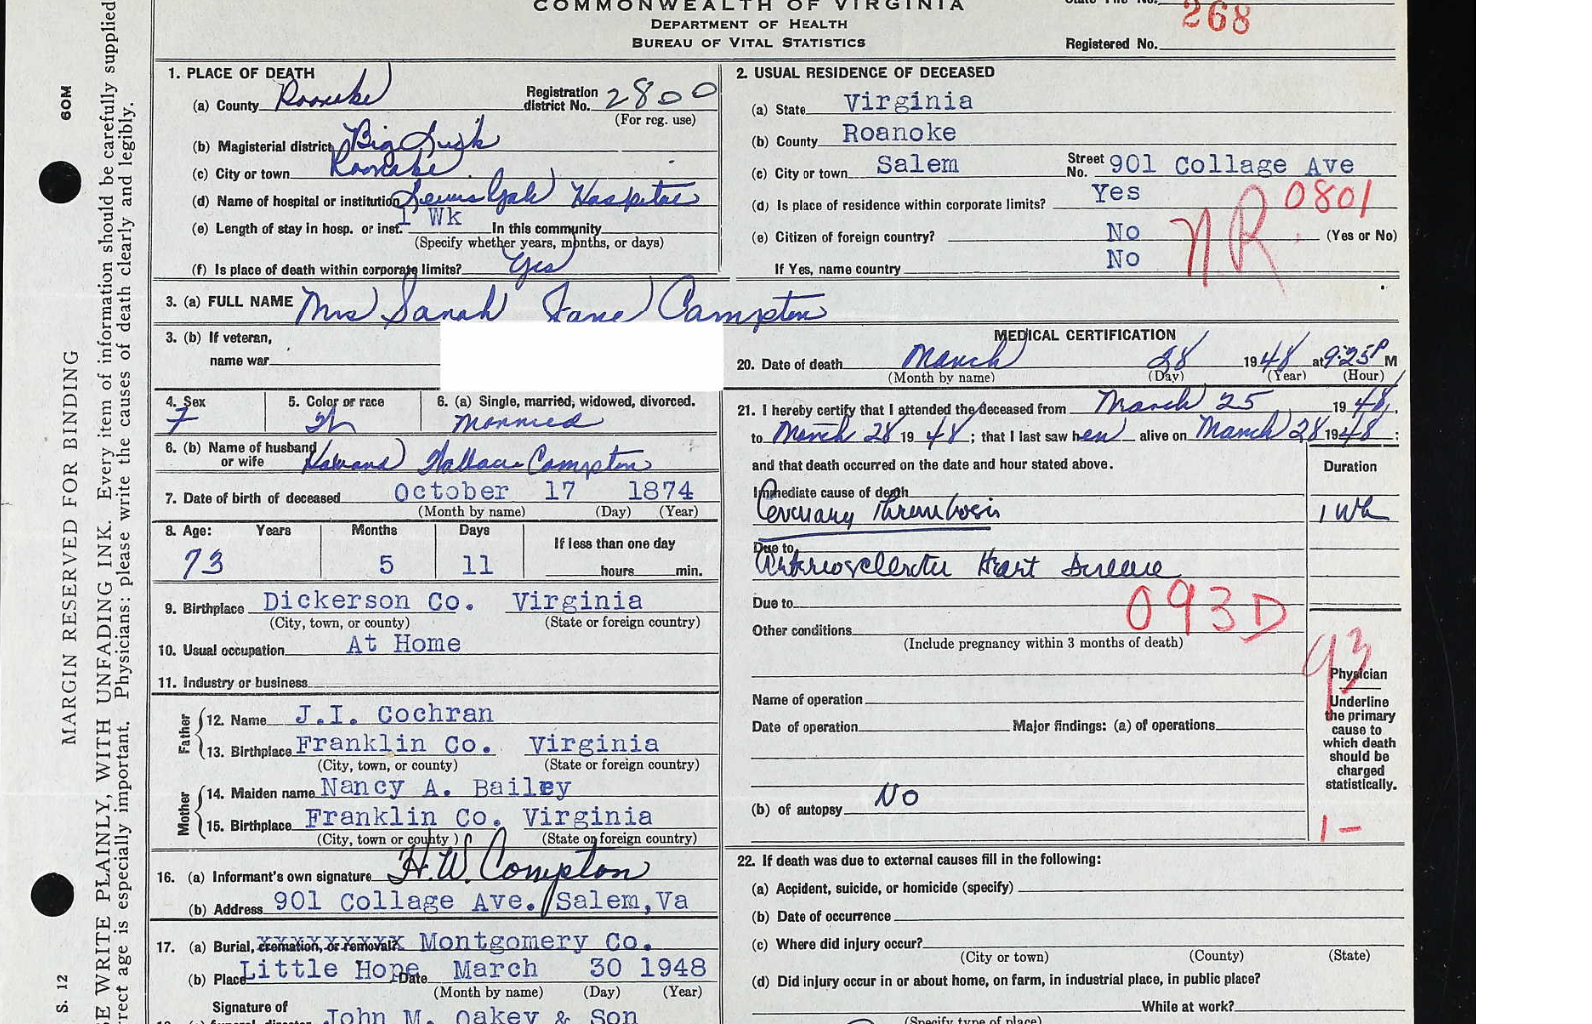 COMMONWEALTH OF VIRGINIA
DEPARTMENT OF HEALTH
BUREAU OF VITAL STATISTICS
268
Registered No.
60M
MARGIN RESERVED FOR BINDING
S. 12
SE WRITE PLAINLY, WITH UNFADING INK. Every item of information should be carefully supplied
rrect age is especially important. Physicians: please write the causes of death clearly and legibly.
1. PLACE OF DEATH
(a) County Roanoke Registration district No. 2800
(For reg. use)
(b) Magisterial district Big Lick
(c) City or town Roanoke
(d) Name of hospital or institution Lewis Gale Hospital
(e) Length of stay in hosp. or inst. 1 Wk In this community
(Specify whether years, months, or days)
(f) Is place of death within corporate limits? Yes
2. USUAL RESIDENCE OF DECEASED
(a) State Virginia
(b) County Roanoke
(c) City or town Salem Street No. 901 Collage Ave
(d) Is place of residence within corporate limits? Yes 0801
(e) Citizen of foreign country? No (Yes or No)
If Yes, name country No
NR
3. (a) FULL NAME Mrs Sarah Jane Compton
3. (b) If veteran,
name war
4. Sex F
5. Color or race W
6. (a) Single, married, widowed, divorced. Married
6. (b) Name of husband or wife Wallace Compton
7. Date of birth of deceased October 17 1874
(Month by name) (Day) (Year)
8. Age: Years Months Days If less than one day
73 5 11 hours min.
9. Birthplace Dickerson Co. Virginia
(City, town, or county) (State or foreign country)
10. Usual occupation At Home
11. Industry or business
Father
12. Name J.I. Cochran
13. Birthplace Franklin Co. Virginia
(City, town, or county) (State or foreign country)
Mother
14. Maiden name Nancy A. Bailey
15. Birthplace Franklin Co. Virginia
(City, town or county) (State or foreign country)
16. (a) Informant's own signature H.W. Compton
(b) Address 901 Collage Ave. Salem,Va
17. (a) Burial, cremation, or removal? Montgomery Co.
(b) Place Little Hope Date March 30 1948
(Month by name) (Day) (Year)
Signature of
John M. Oakey & Son
MEDICAL CERTIFICATION
20. Date of death March 28 1948 at 9:25 P M
(Month by name) (Day) (Year) (Hour)
21. I hereby certify that I attended the deceased from March 25 1948,
to March 28 1948; that I last saw her alive on March 28 1948:
and that death occurred on the date and hour stated above.
Duration
Immediate cause of death
Coronary Thrombosis 1 Wk
Due to
Arteriosclerotic Heart Disease
Due to
093D
Other conditions
(Include pregnancy within 3 months of death)
93
Name of operation
Date of operation Major findings: (a) of operations
(b) of autopsy No
Physician
Underline
the primary
cause to
which death
should be
charged
statistically.
1-
22. If death was due to external causes fill in the following:
(a) Accident, suicide, or homicide (specify)
(b) Date of occurrence
(c) Where did injury occur?
(City or town) (County) (State)
(d) Did injury occur in or about home, on farm, in industrial place, in public place?
While at work?
(Specify type of place)